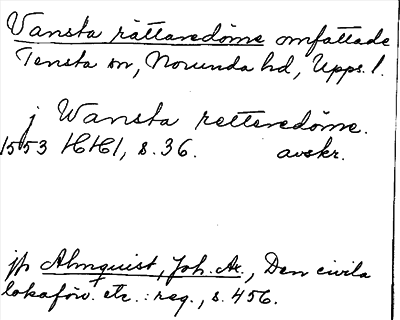 Vansta rättaredöme omfattade
Tensta sn, Norunda hd, Upps. l.
j Wansta retteredöme.
1553 HH1, s. 36. avskr.
jfr Almquist, Joh. Ax., Den civila
lokalförv. etc.: reg., s. 456.